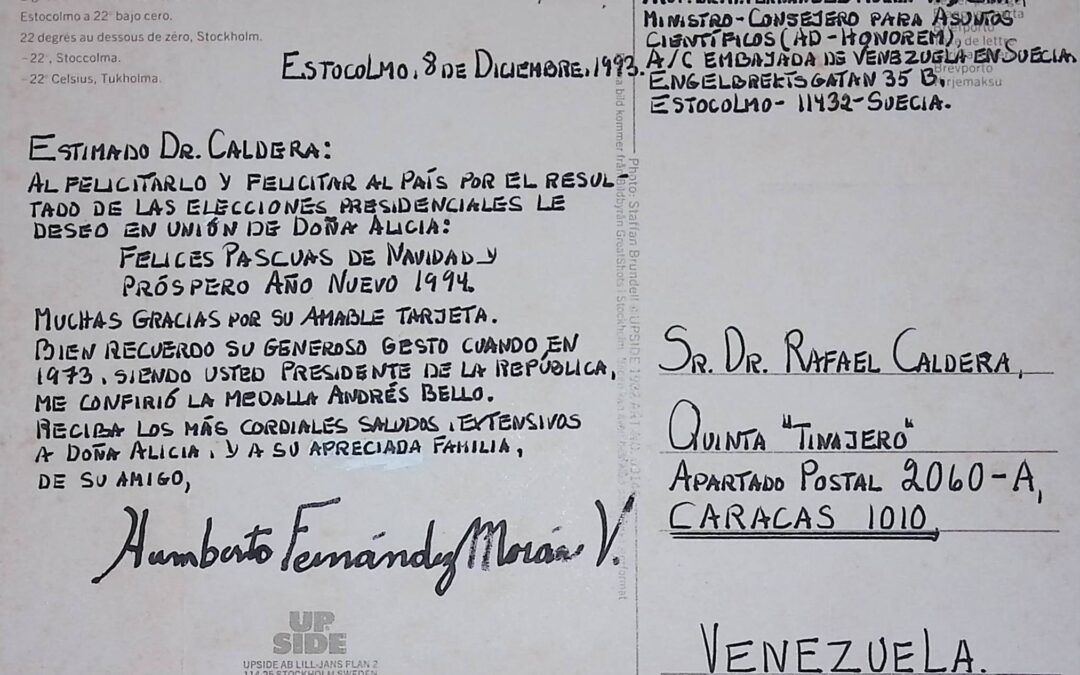 Estocolmo a 22° bajo cero.
22 degrés au dessous de zéro, Stockholm.
-22°, Stoccolma.
-22° Celsius, Tukholma.
ESTOCOLMO, 8 DE DICIEMBRE, 1993.
ESTIMADO DR. CALDERA:
AL FELICITARLO Y FELICITAR AL PAÍS POR EL RESUL-
TADO DE LAS ELECCIONES PRESIDENCIALES LE
DESEO EN UNIÓN DE DOÑA ALICIA:
FELICES PASCUAS DE NAVIDAD Y
PRÓSPERO AÑO NUEVO 1994.
MUCHAS GRACIAS POR SU AMABLE TARJETA.
BIEN RECUERDO SU GENEROSO GESTO CUANDO EN
1973, SIENDO USTED PRESIDENTE DE LA REPÚBLICA,
ME CONFIRIÓ LA MEDALLA ANDRÉS BELLO.
RECIBA LOS MÁS CORDIALES SALUDOS, EXTENSIVOS
A DOÑA ALICIA, Y A SU APRECIADA FAMILIA,
DE SU AMIGO,
Humberto Fernández Morán V.
UP
SIDE
UPSIDE AB LILL-JANS PLAN 2
114 25 STOCKHOLM SWEDEN
Photo: Staffan Brundell
bild kommer från Bildbyrån GreatShots i Stockholm.
MINISTRO-CONSEJERO PARA ASUNTOS
CIENTÍFICOS (AD-HONOREM),
A/C EMBAJADA DE VENEZUELA EN SUECIA.
ENGELBREKTSGATAN 35 B,
ESTOCOLMO- 11432-SUECIA.
de lettre
Brevporto
SR. DR. RAFAEL CALDERA,
QUINTA "TINAJERO"
APARTADO POSTAL 2060-A,
CARACAS 1010,
VENEZUELA.